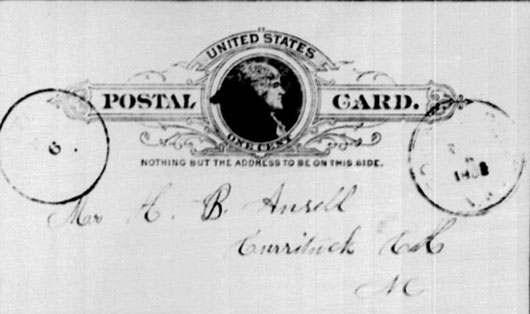 UNITED STATES
POSTAL CARD.
ONE CENT
NOTHING BUT THE ADDRESS TO BE ON THIS SIDE.
Mr H. B. Ansell
Currituck C.H.
NC